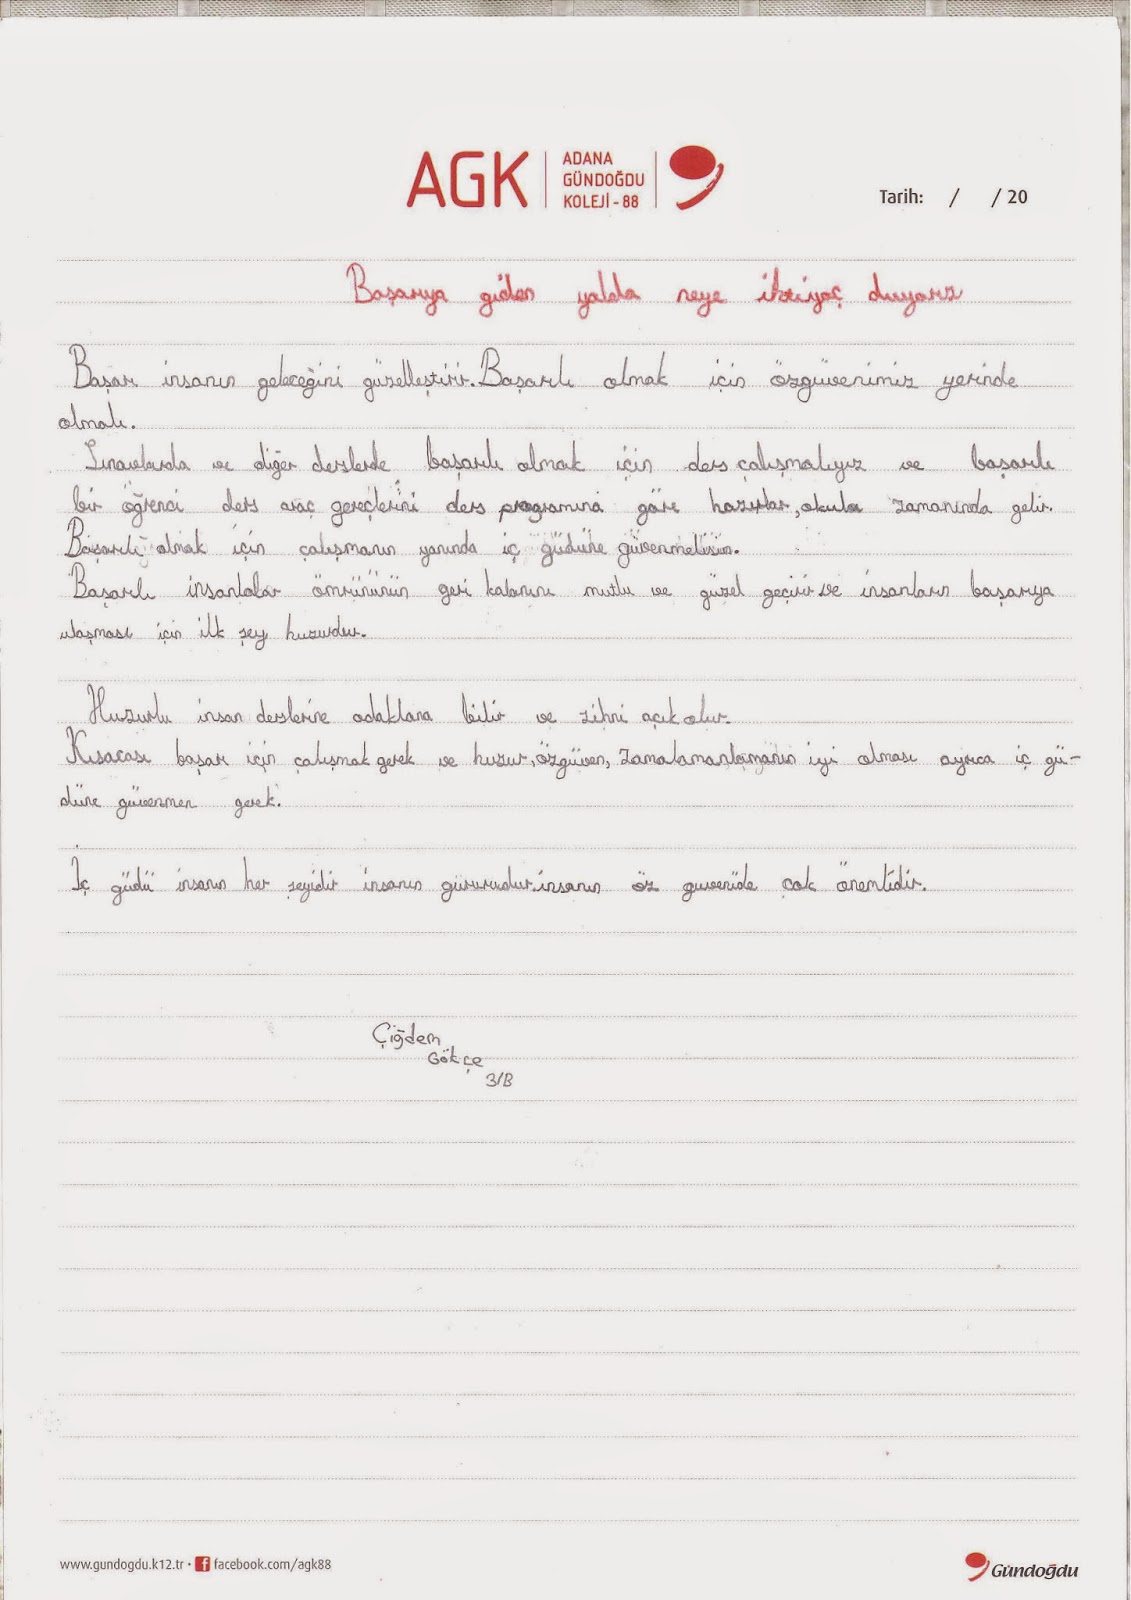 AGK
ADANA
GÜNDOĞDU
KOLEJİ - 88
Tarih: / / 20
Başarıya giden yolda neye ihtiyaç duyarız
Başarı insanın geleceğini güzelleştirir. Başarılı olmak için özgüvenimiz yerinde
olmalı.
Sınavlarda ve diğer derslerde başarılı olmak için ders çalışmalıyız ve başarılı
bir öğrenci ders araç gereçlerini ders programına göre hazırlar, okula zamanında gelir.
Başarılı olmak için çalışmanın yanında iç güdüne güvenmelisin.
Başarılı insanlalar ömrününün geri kalanını mutlu ve güzel geçirir ve insanların başarıya
ulaşması için ilk şey huzurdur.
Huzurlu insan derslerine odaklana bilir ve zihni açık olur.
Kısacası başarı için çalışmak gerek ve huzur, özgüven, iyi olması ayrıca iç gü-
düne güvenmen gerek.
İç güdü insanın her şeyidir insanın gururudur. insanın öz guvenide çok önemlidir.
Çiğdem
Gökçe
3/B
www.gundogdu.k12.tr • f facebook.com/agk88
Gündoğdu